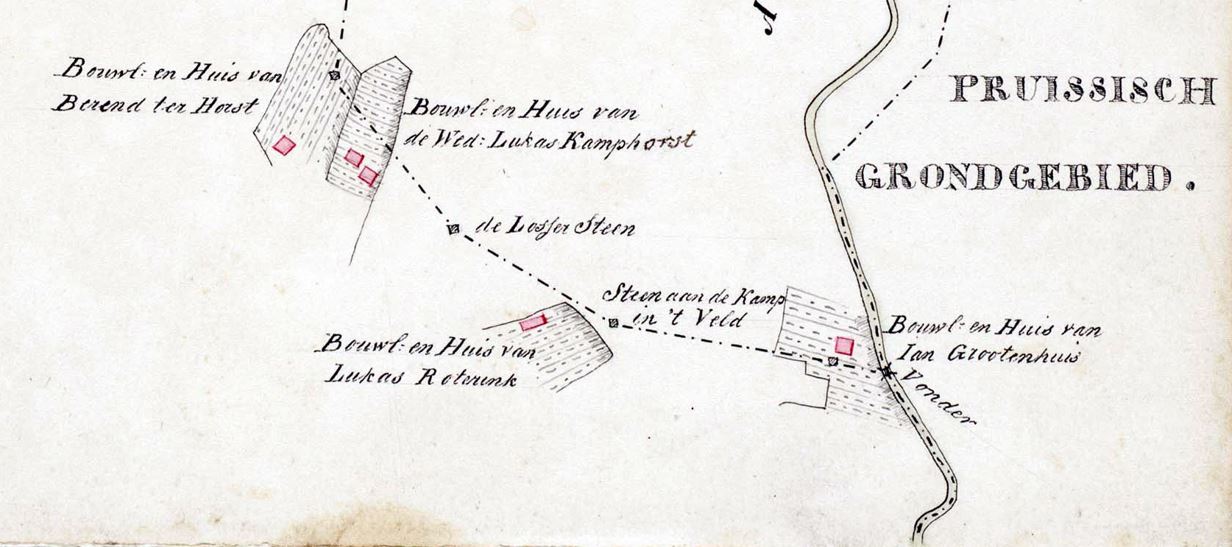 Bouwl: en Huis van
Berend ter Horst
Bouwl: en Huis van
de Wed: Lukas Kamphorst
PRUISSISCH
GRONDGEBIED.
de Losser Steen
Steen aan de Kamp
in 't Veld
Bouwl: en Huis van
Lukas Roterink
Bouwl: en Huis van
Ian Grootenhuis
Vonder